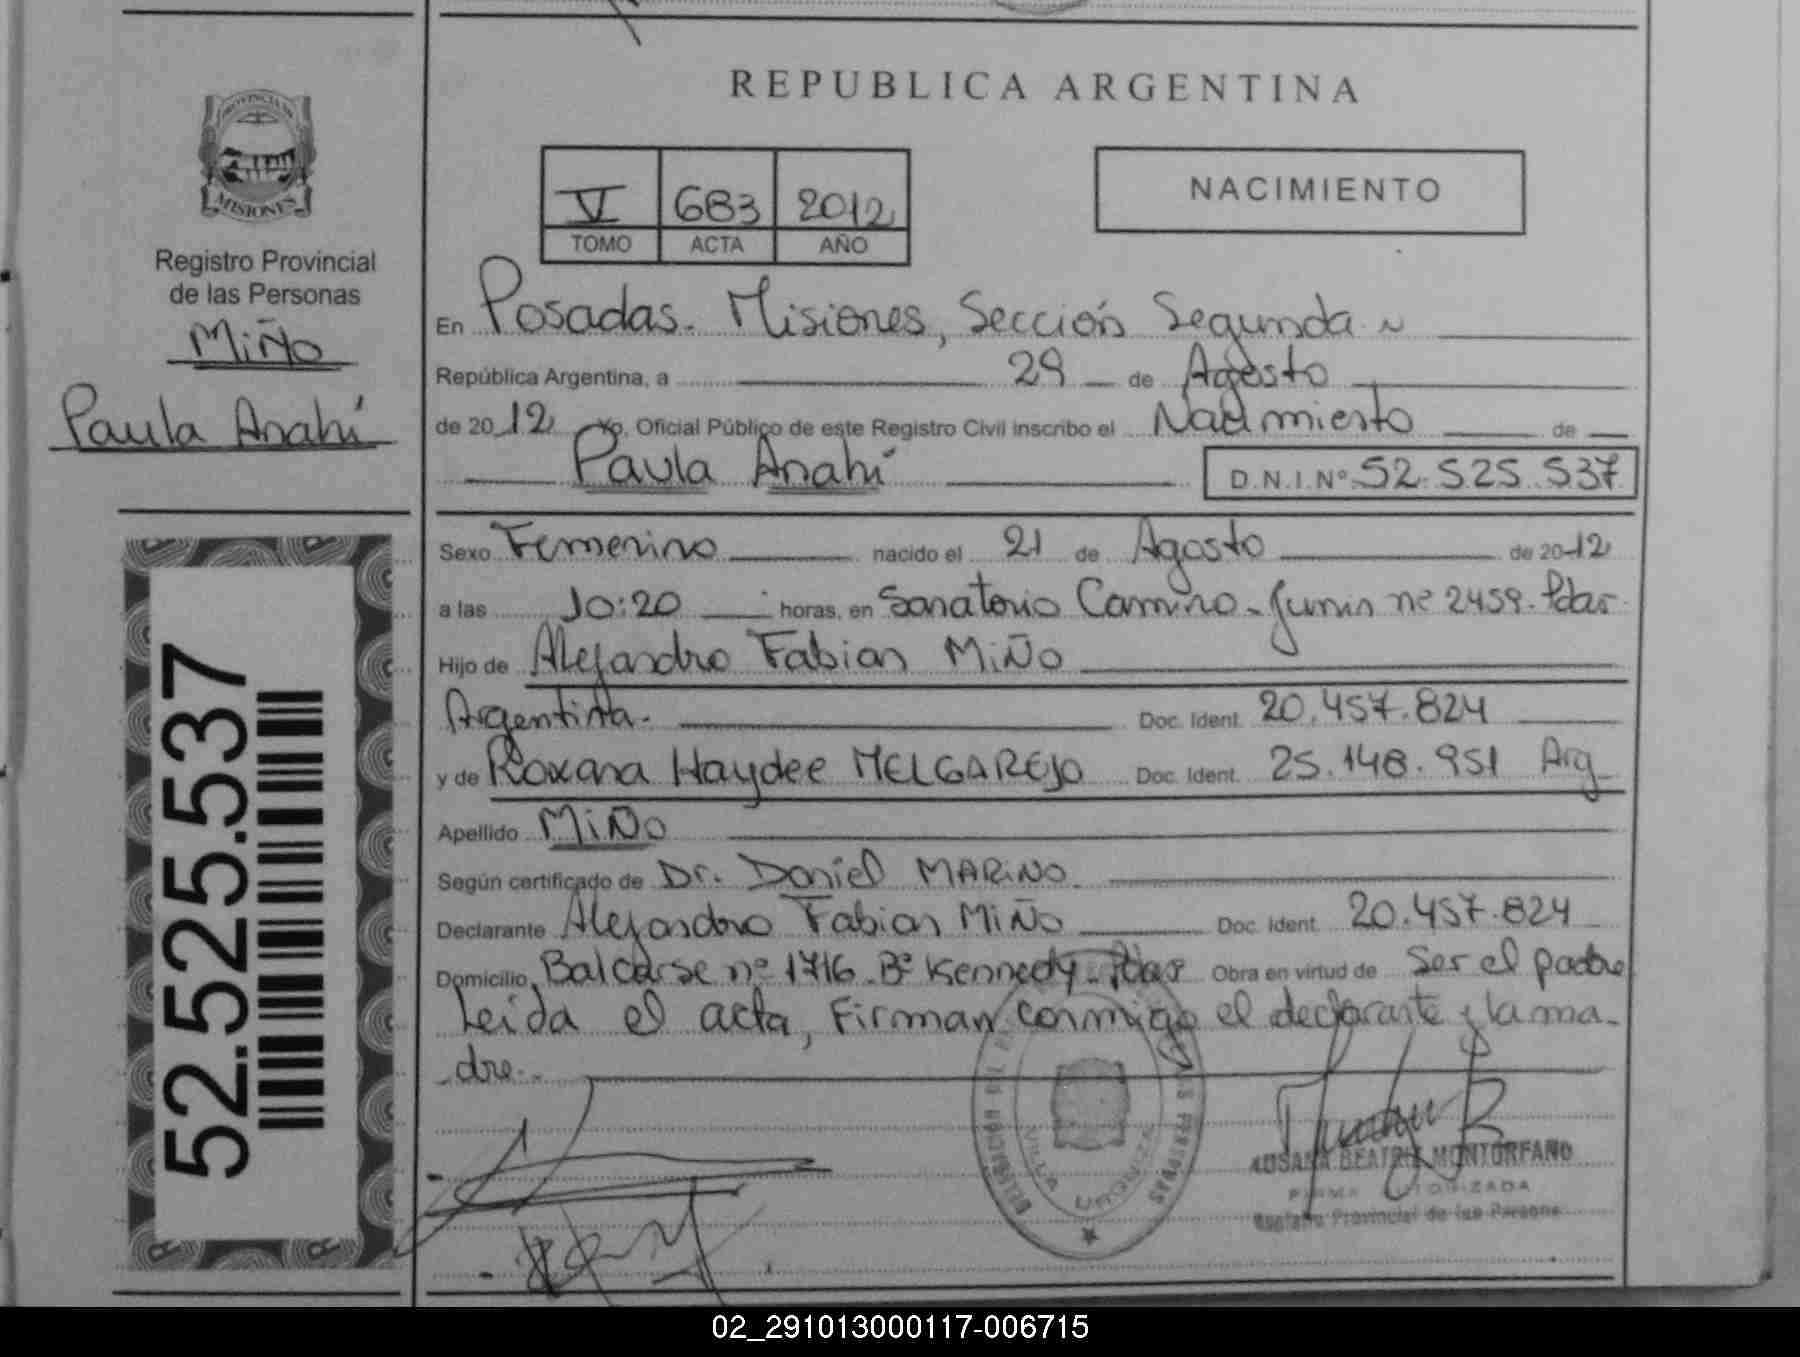 REPUBLICA ARGENTINA
PROVINCIA DE
MISIONES
Registro Provincial
de las Personas
Miño
Paula Anahí
52.525.537
V 683 2012
TOMO ACTA AÑO
NACIMIENTO
En Posadas. Misiones, Sección Segunda
República Argentina, a 29 de Agosto
de 2012 Yo, Oficial Público de este Registro Civil inscribo el Nacimiento de
Paula Anahí D.N.I.Nº 52.525.537
Sexo Femenino nacido el 21 de Agosto de 2012
a las 10:20 horas, en Sanatorio Camino. Junin nº 2459. Pdas
Hijo de Alejandro Fabian Miño
Argentina. Doc. Ident. 20.457.824
y de Roxana Haydee MELGAREJO Doc. Ident. 25.148.951 Arg
Apellido Miño
Según certificado de Dr. Daniel MARiNO.
Declarante Alejandro Fabian Miño Doc. Ident. 20.457.824
Domicilio Balcarse nº 1716. Bº Kennedy. Pdas Obra en virtud de Ser el padre
Leida el acta, Firman conmigo el declarante y la ma-
dre.
VILLA URQUIZA
BEATRIZ MONTORFANO
FIRMA AUTORIZADA
Registro Provincial de las Personas
02_291013000117-006715